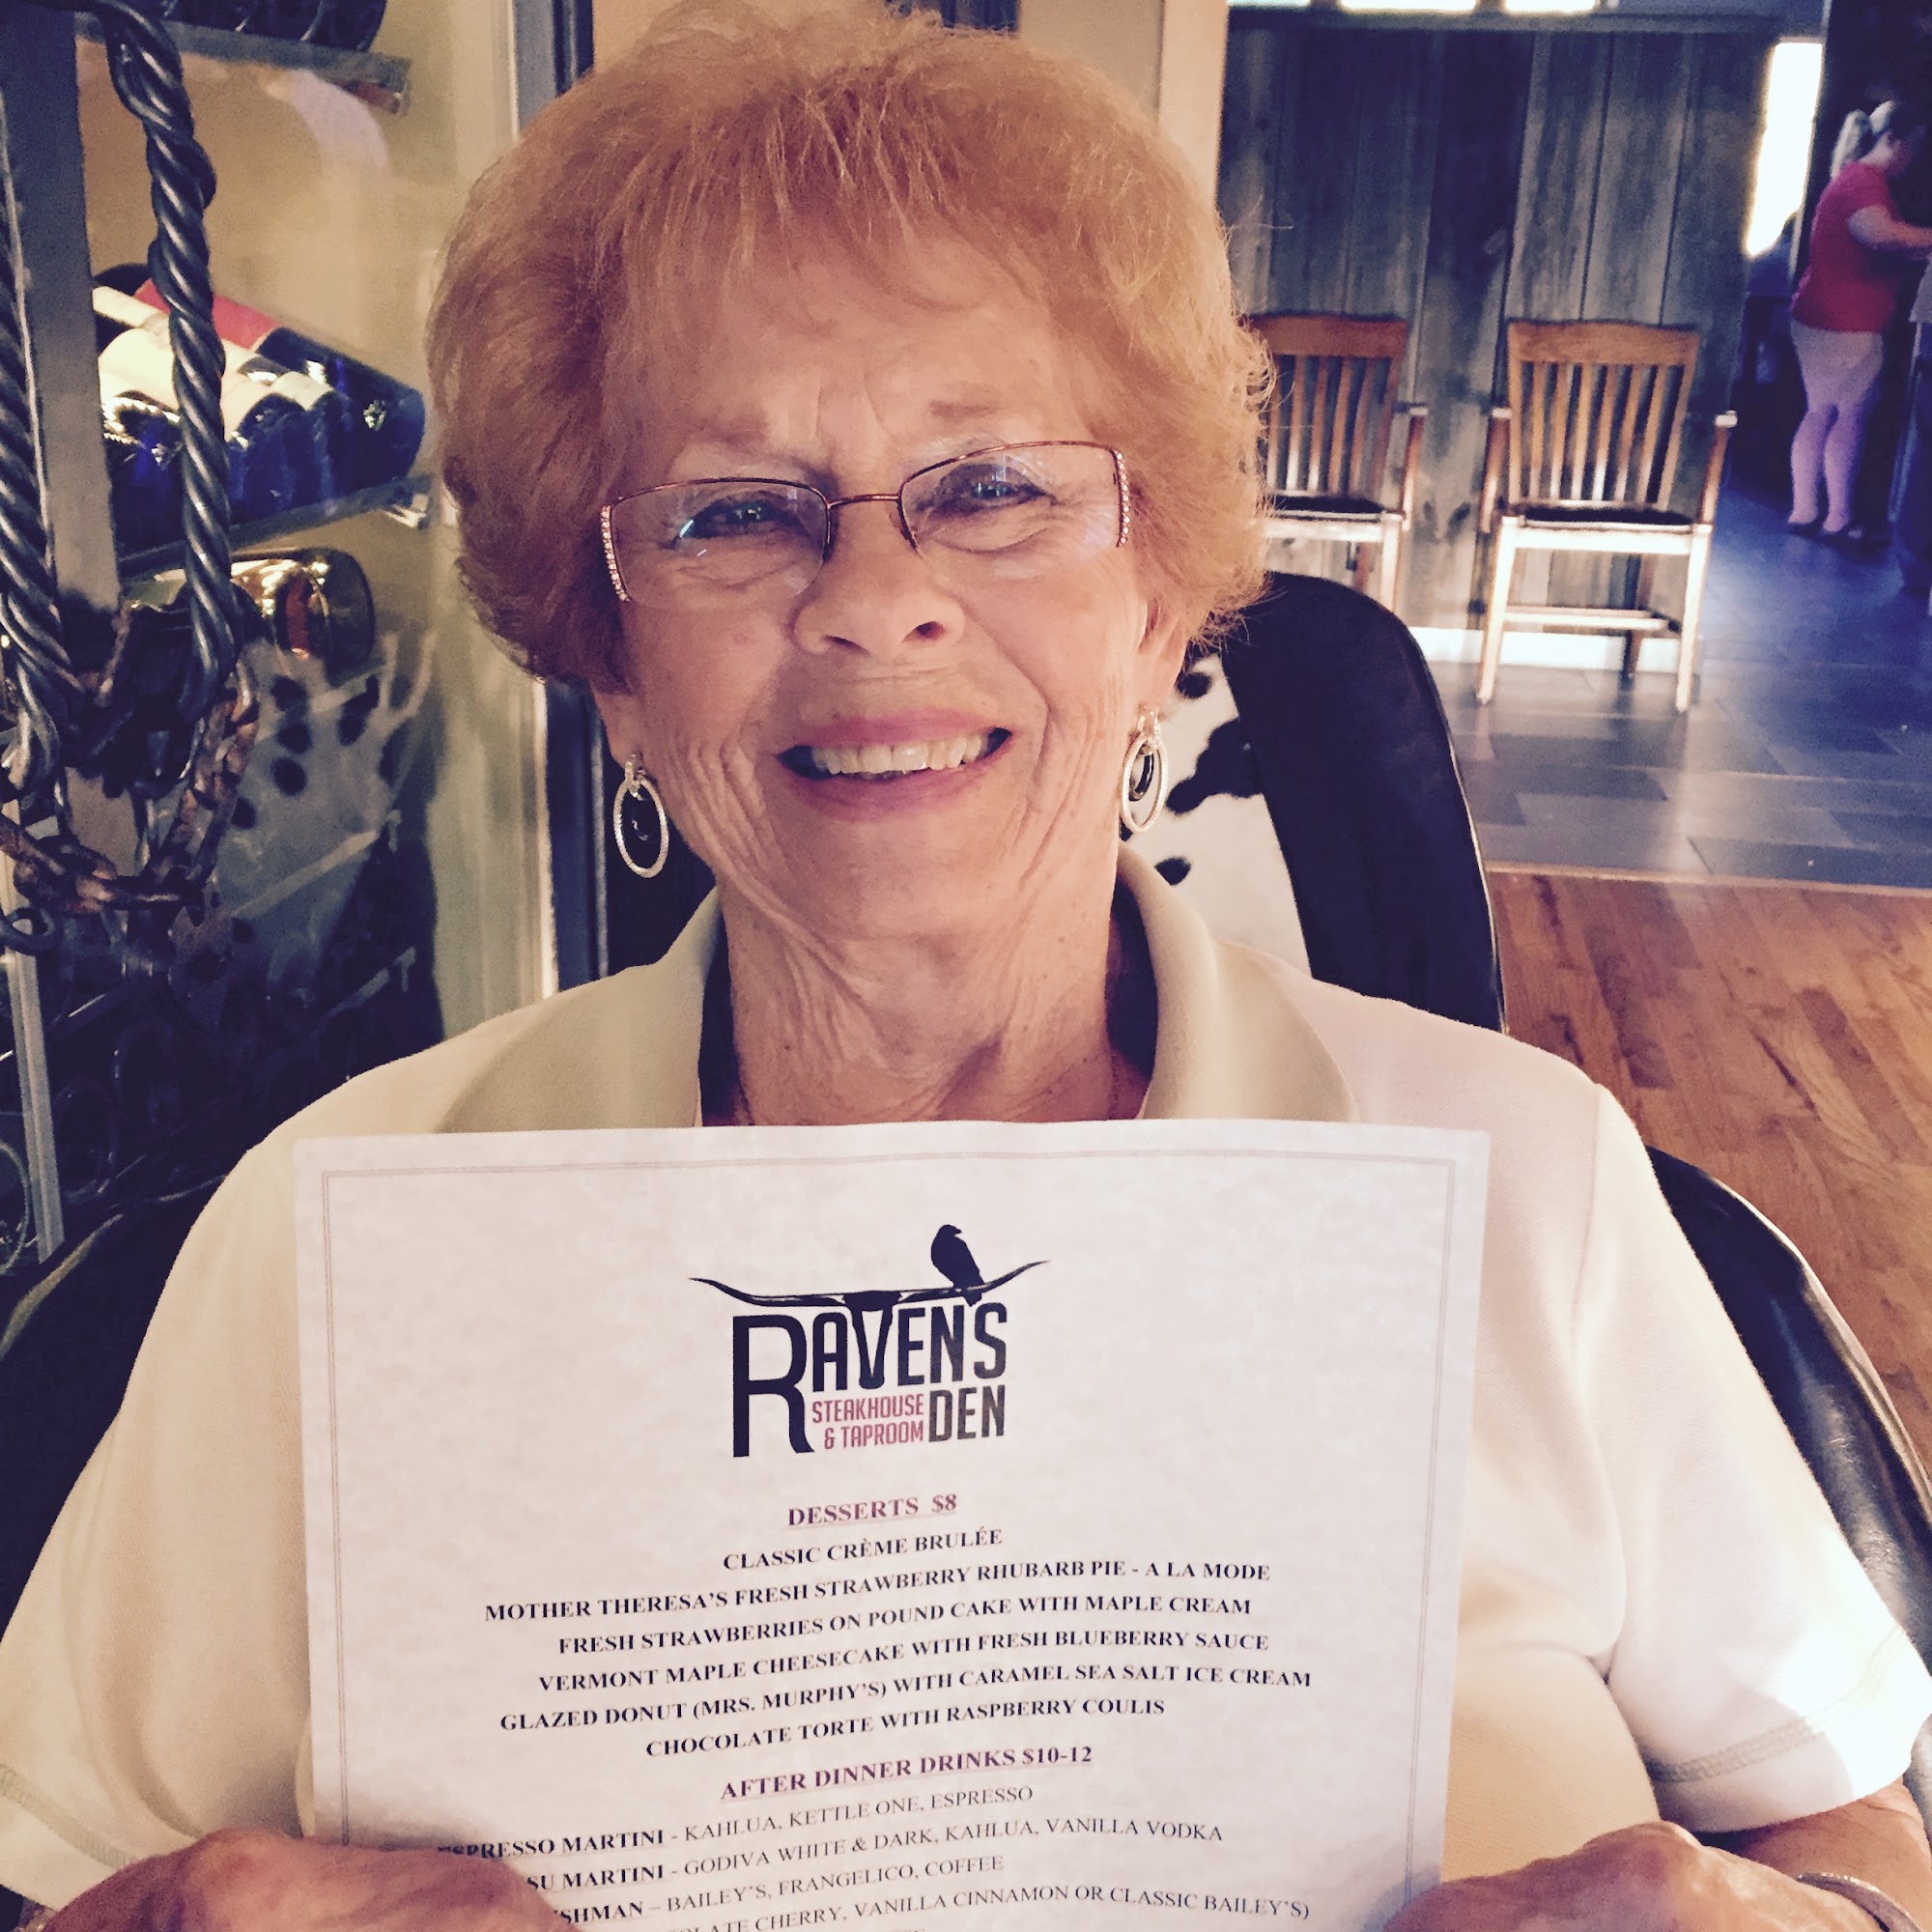 RAVEN'S
STEAKHOUSE DEN
& TAPROOM
DESSERTS $8
CLASSIC CRÈME BRULÉE
MOTHER THERESA'S FRESH STRAWBERRY RHUBARB PIE - A LA MODE
FRESH STRAWBERRIES ON POUND CAKE WITH MAPLE CREAM
VERMONT MAPLE CHEESECAKE WITH FRESH BLUEBERRY SAUCE
GLAZED DONUT (MRS. MURPHY'S) WITH CARAMEL SEA SALT ICE CREAM
CHOCOLATE TORTE WITH RASPBERRY COULIS
AFTER DINNER DRINKS $10-12
ESPRESSO MARTINI - KAHLUA, KETTLE ONE, ESPRESSO
MARTINI - GODIVA WHITE & DARK, KAHLUA, VANILLA VODKA
– BAILEY'S, FRANGELICO, COFFEE
CHERRY, VANILLA CINNAMON OR CLASSIC BAILEY'S)